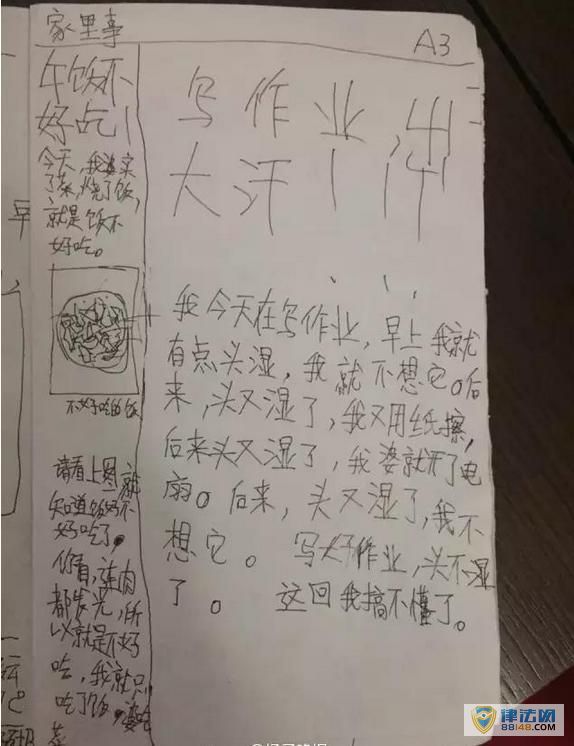 家里事
A3
午饭不
好吃！
今天，我婆买
了菜，烧了饭，
就是饭不
好吃。
不好吃的饭
请看上图就
知道饭好不
好吃了。
你看，连肉
都发光，所
以就是不好
吃，我就只
吃了饭，婆吃
菜
写作业，出
大汗！
我今天在写作业，早上我就
有点头湿，我就不想它。后
来，头又湿了，我又用纸擦，
后来头又湿了，我婆就开了电
扇。后来，头又湿了，我不
想它。 写好作业，头不湿
了。 这回我搞不懂了。
早
律法网
88148.com